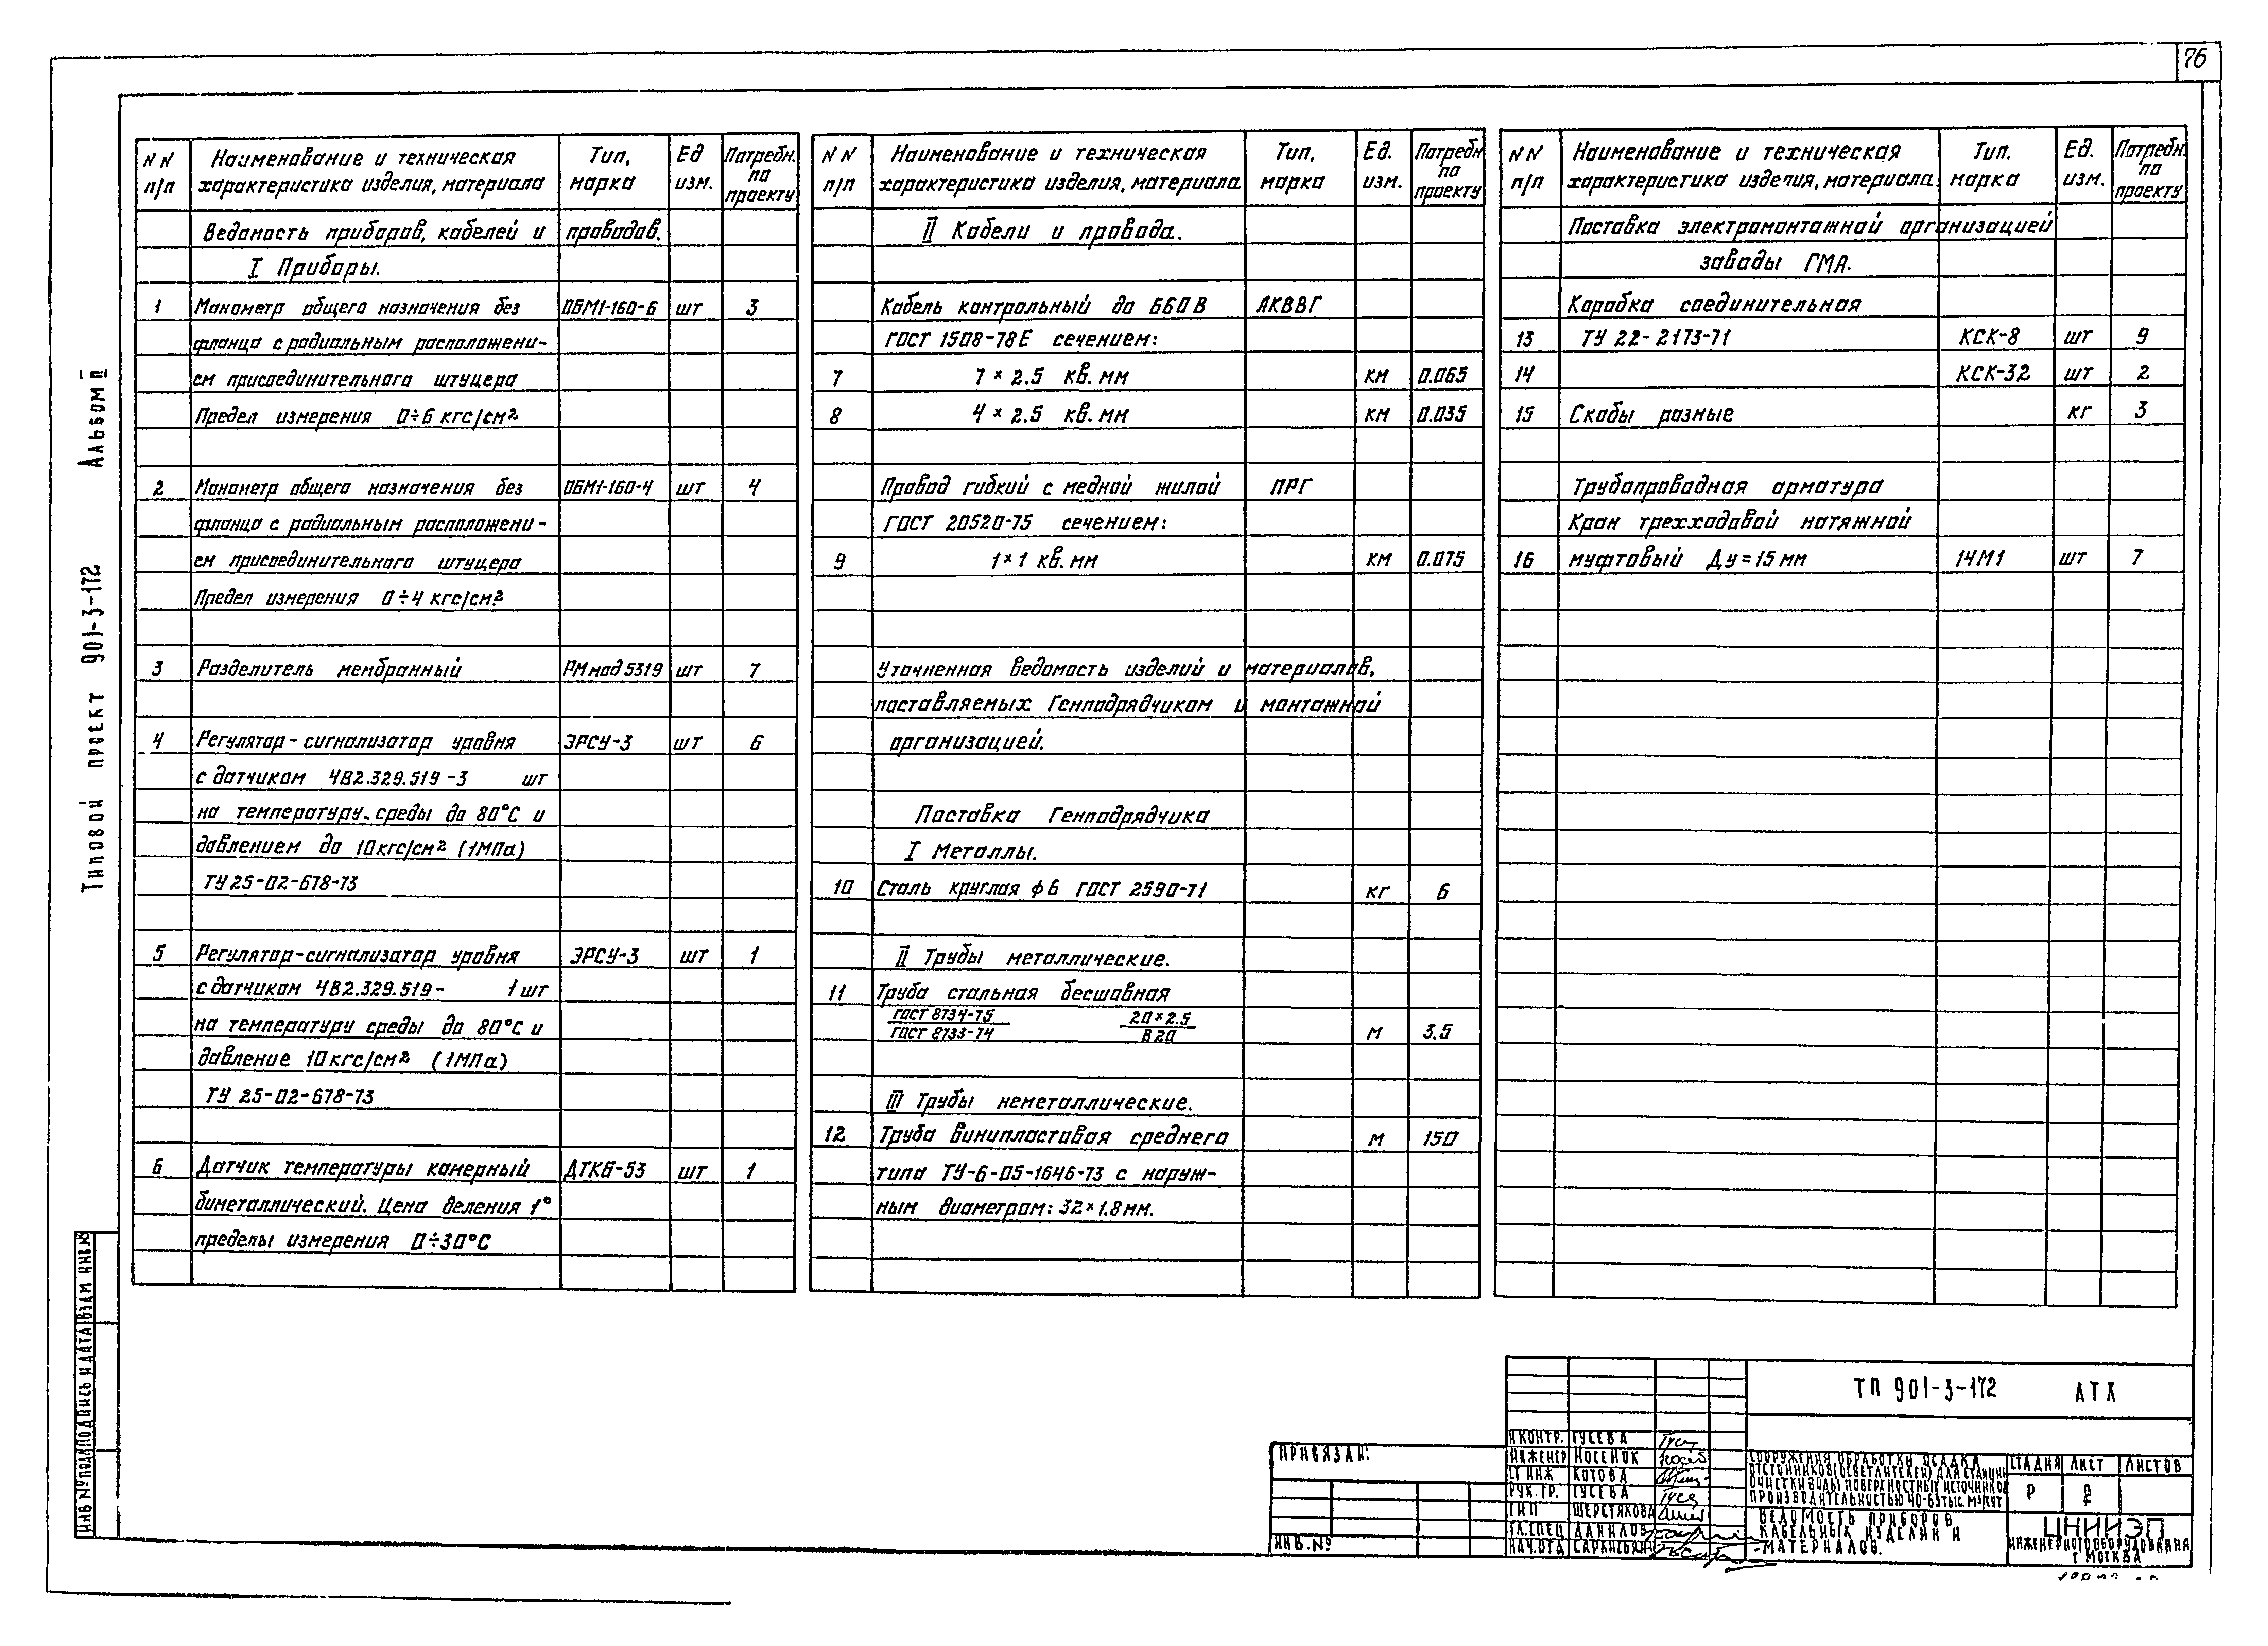 76
Альбом II
Типовой проект 901-3-172
N N п/п
Наименование и техническая характеристика изделия, материала
Тип, марка
Ед изм.
Потребн. по проекту
Ведомость приборов, кабелей и проводов.
I Приборы.
1 Манометр общего назначения без ОБМ1-160-6 шт 3
фланца с радиальным расположени-
ем присоединительного штуцера
Предел измерения 0÷6 кгс/см²
2 Манометр общего назначения без ОБМ1-160-4 шт 4
фланца с радиальным расположени-
ем присоединительного штуцера
Предел измерения 0÷4 кгс/см²
3 Разделитель мембранный РМ мод 5319 шт 7
4 Регулятор-сигнализатор уровня ЭРСУ-3 шт 6
с датчиком ЧВ2.329.519-3 шт
на температуру среды до 80°С и
давлением до 10кгс/см² (1МПа)
ТУ 25-02-678-73
5 Регулятор-сигнализатор уровня ЭРСУ-3 шт 1
с датчиком ЧВ2.329.519- 1 шт
на температуру среды до 80°С и
давление 10кгс/см² (1МПа)
ТУ 25-02-678-73
6 Датчик температуры камерный ДТКБ-53 шт 1
биметаллический. Цена деления 1°
пределы измерения 0÷30°С
N N п/п
Наименование и техническая характеристика изделия, материала
Тип, марка
Ед. изм.
Потребн по проекту
II Кабели и провода.
Кабель контрольный до 660В АКВВГ
ГОСТ 1508-78Е сечением:
7 7×2.5 кв. мм км 0.065
8 4×2.5 кв. мм км 0.035
Провод гибкий с медной жилой ПРГ
ГОСТ 20520-75 сечением:
9 1×1 кв. мм км 0.075
Уточненная ведомость изделий и материалов,
поставляемых Генподрядчиком и монтажной
организацией.
Поставка Генподрядчика
I Металлы.
10 Сталь круглая ф6 ГОСТ 2590-71 кг 6
II Трубы металлические.
11 Труба стальная бесшовная
ГОСТ 8734-75 20×2.5
ГОСТ 8733-74 В20 м 3.5
III Трубы неметаллические.
12 Труба винипластовая среднего м 150
типа ТУ-6-05-1646-73 с наруж-
ным диаметром: 32×1.8мм.
N N п/п
Наименование и техническая характеристика изделия, материала
Тип. марка
Ед. изм.
Потребн. по проекту
Поставка электромонтажной организацией
заводы ГМА.
Коробка соединительная
13 ТУ 22-2173-71 КСК-8 шт 9
14 КСК-32 шт 2
15 Скобы разные кг 3
Трубопроводная арматура
Кран трехходовой натяжной
16 муфтовый Ду=15 мм 14М1 шт 7
ИНВ № ПОДЛ ПОДПИСЬ И ДАТА ВЗАМ ИНВ №
ПРИВЯЗАН:
ИНВ. №
ТП 901-3-172 АТХ
Н КОНТР. ГУСЕВА
ИНЖЕНЕР НОСЕНОК
СТ ИНЖ КОТОВА
РУК. ГР. ГУСЕВА
ГИП ШЕРСТЯКОВА
ГЛ. СПЕЦ ДАНИЛОВ
НАЧ. ОТД САРКИСЬЯН
СООРУЖЕНИЯ ОБРАБОТКИ ОСАДКА
ОТСТОЙНИКОВ (ОСВЕТЛИТЕЛЕЙ) ДЛЯ СТАНЦИИ
ОЧИСТКИ ВОДЫ ПОВЕРХНОСТНЫХ ИСТОЧНИКОВ
ПРОИЗВОДИТЕЛЬНОСТЬЮ 40-63 ТЫС. М³/СУТ
СТАДИЯ ЛИСТ ЛИСТОВ
Р 2
ВЕДОМОСТЬ ПРИБОРОВ,
КАБЕЛЬНЫХ ИЗДЕЛИЙ И
МАТЕРИАЛОВ.
ЦНИИЭП
ИНЖЕНЕРНОГО ОБОРУДОВАНИЯ
Г МОСКВА